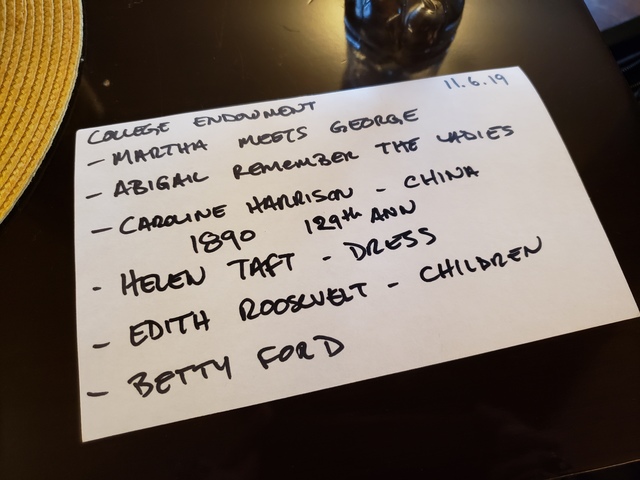 11.6.19
COLLEGE ENDOWMENT
- MARTHA MEETS GEORGE
- ABIGAIL REMEMBER THE LADIES
- CAROLINE HARRISON - CHINA
1890 129th ANN
- HELEN TAFT - DRESS
- EDITH ROOSEVELT - CHILDREN
- BETTY FORD